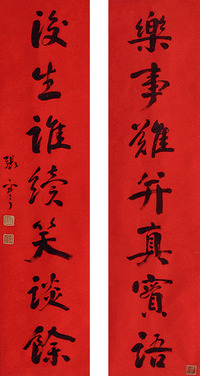 樂事難并真實語
後生誰續笑談餘
張謇